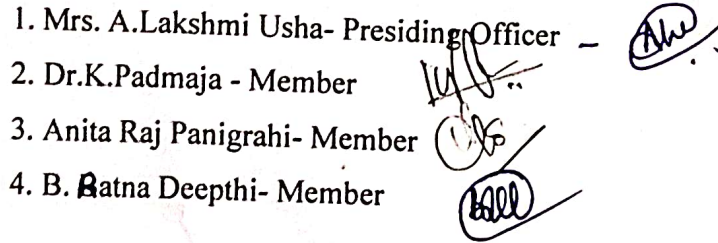 1. Mrs. A.Lakshmi Usha- Presiding Officer -
2. Dr.K.Padmaja - Member
3. Anita Raj Panigrahi- Member
4. B. Ratna Deepthi- Member